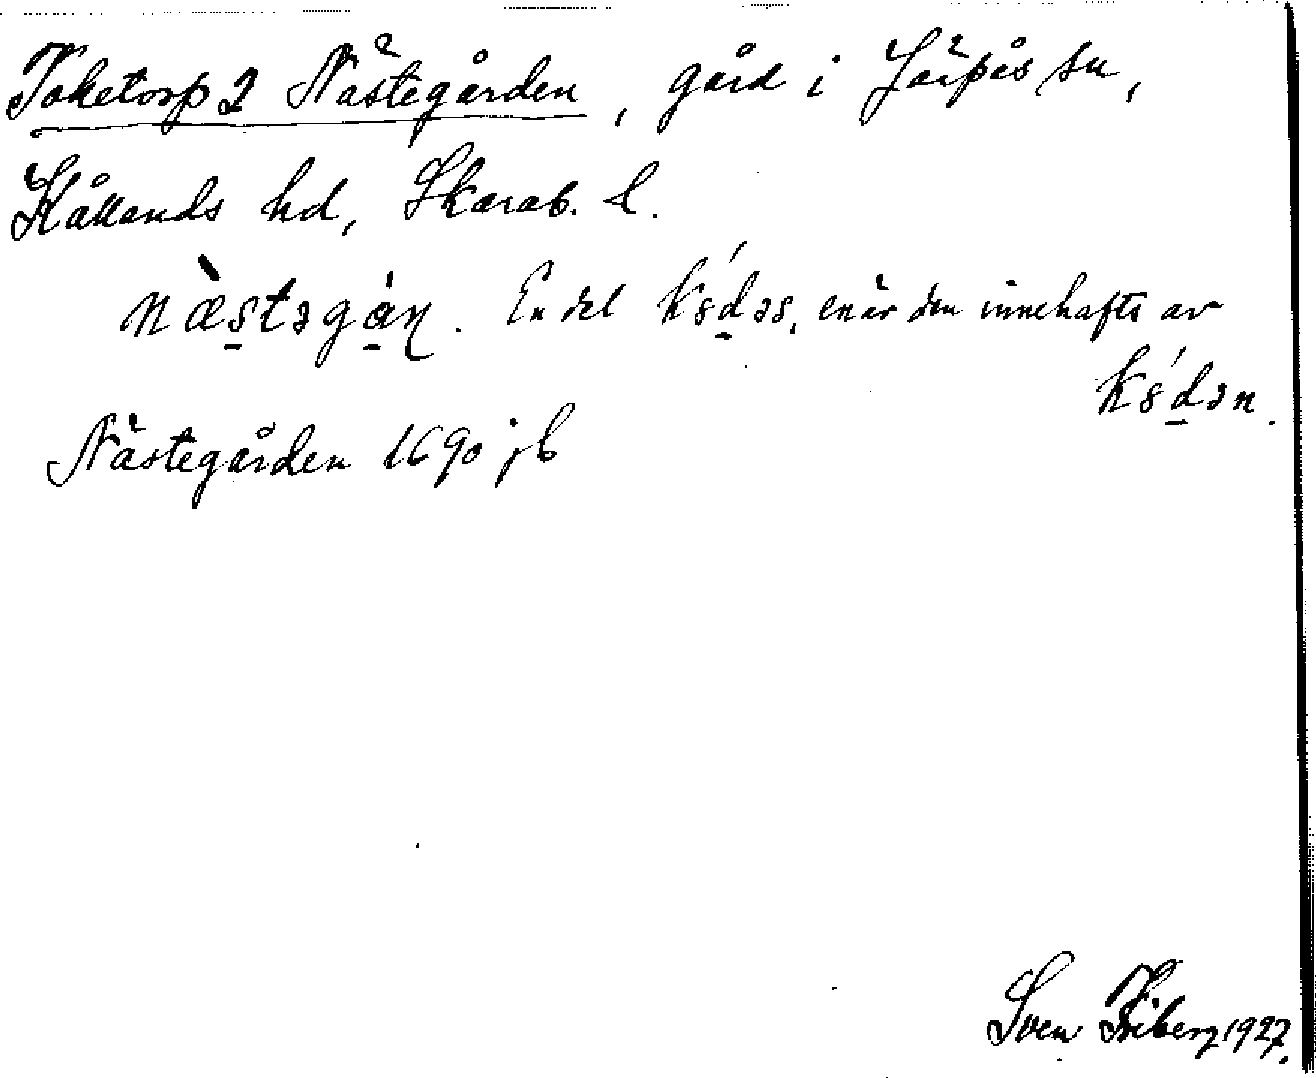 Toketorp 2 Nästegården, gård i Järpås sn,
Kållands hd, Skarab. l.
næ̀stəgàɳ. En del kśdəs, enär den innehafts av
kśdən.
Nästegården 1690 jb
Sven Friberg 1927.